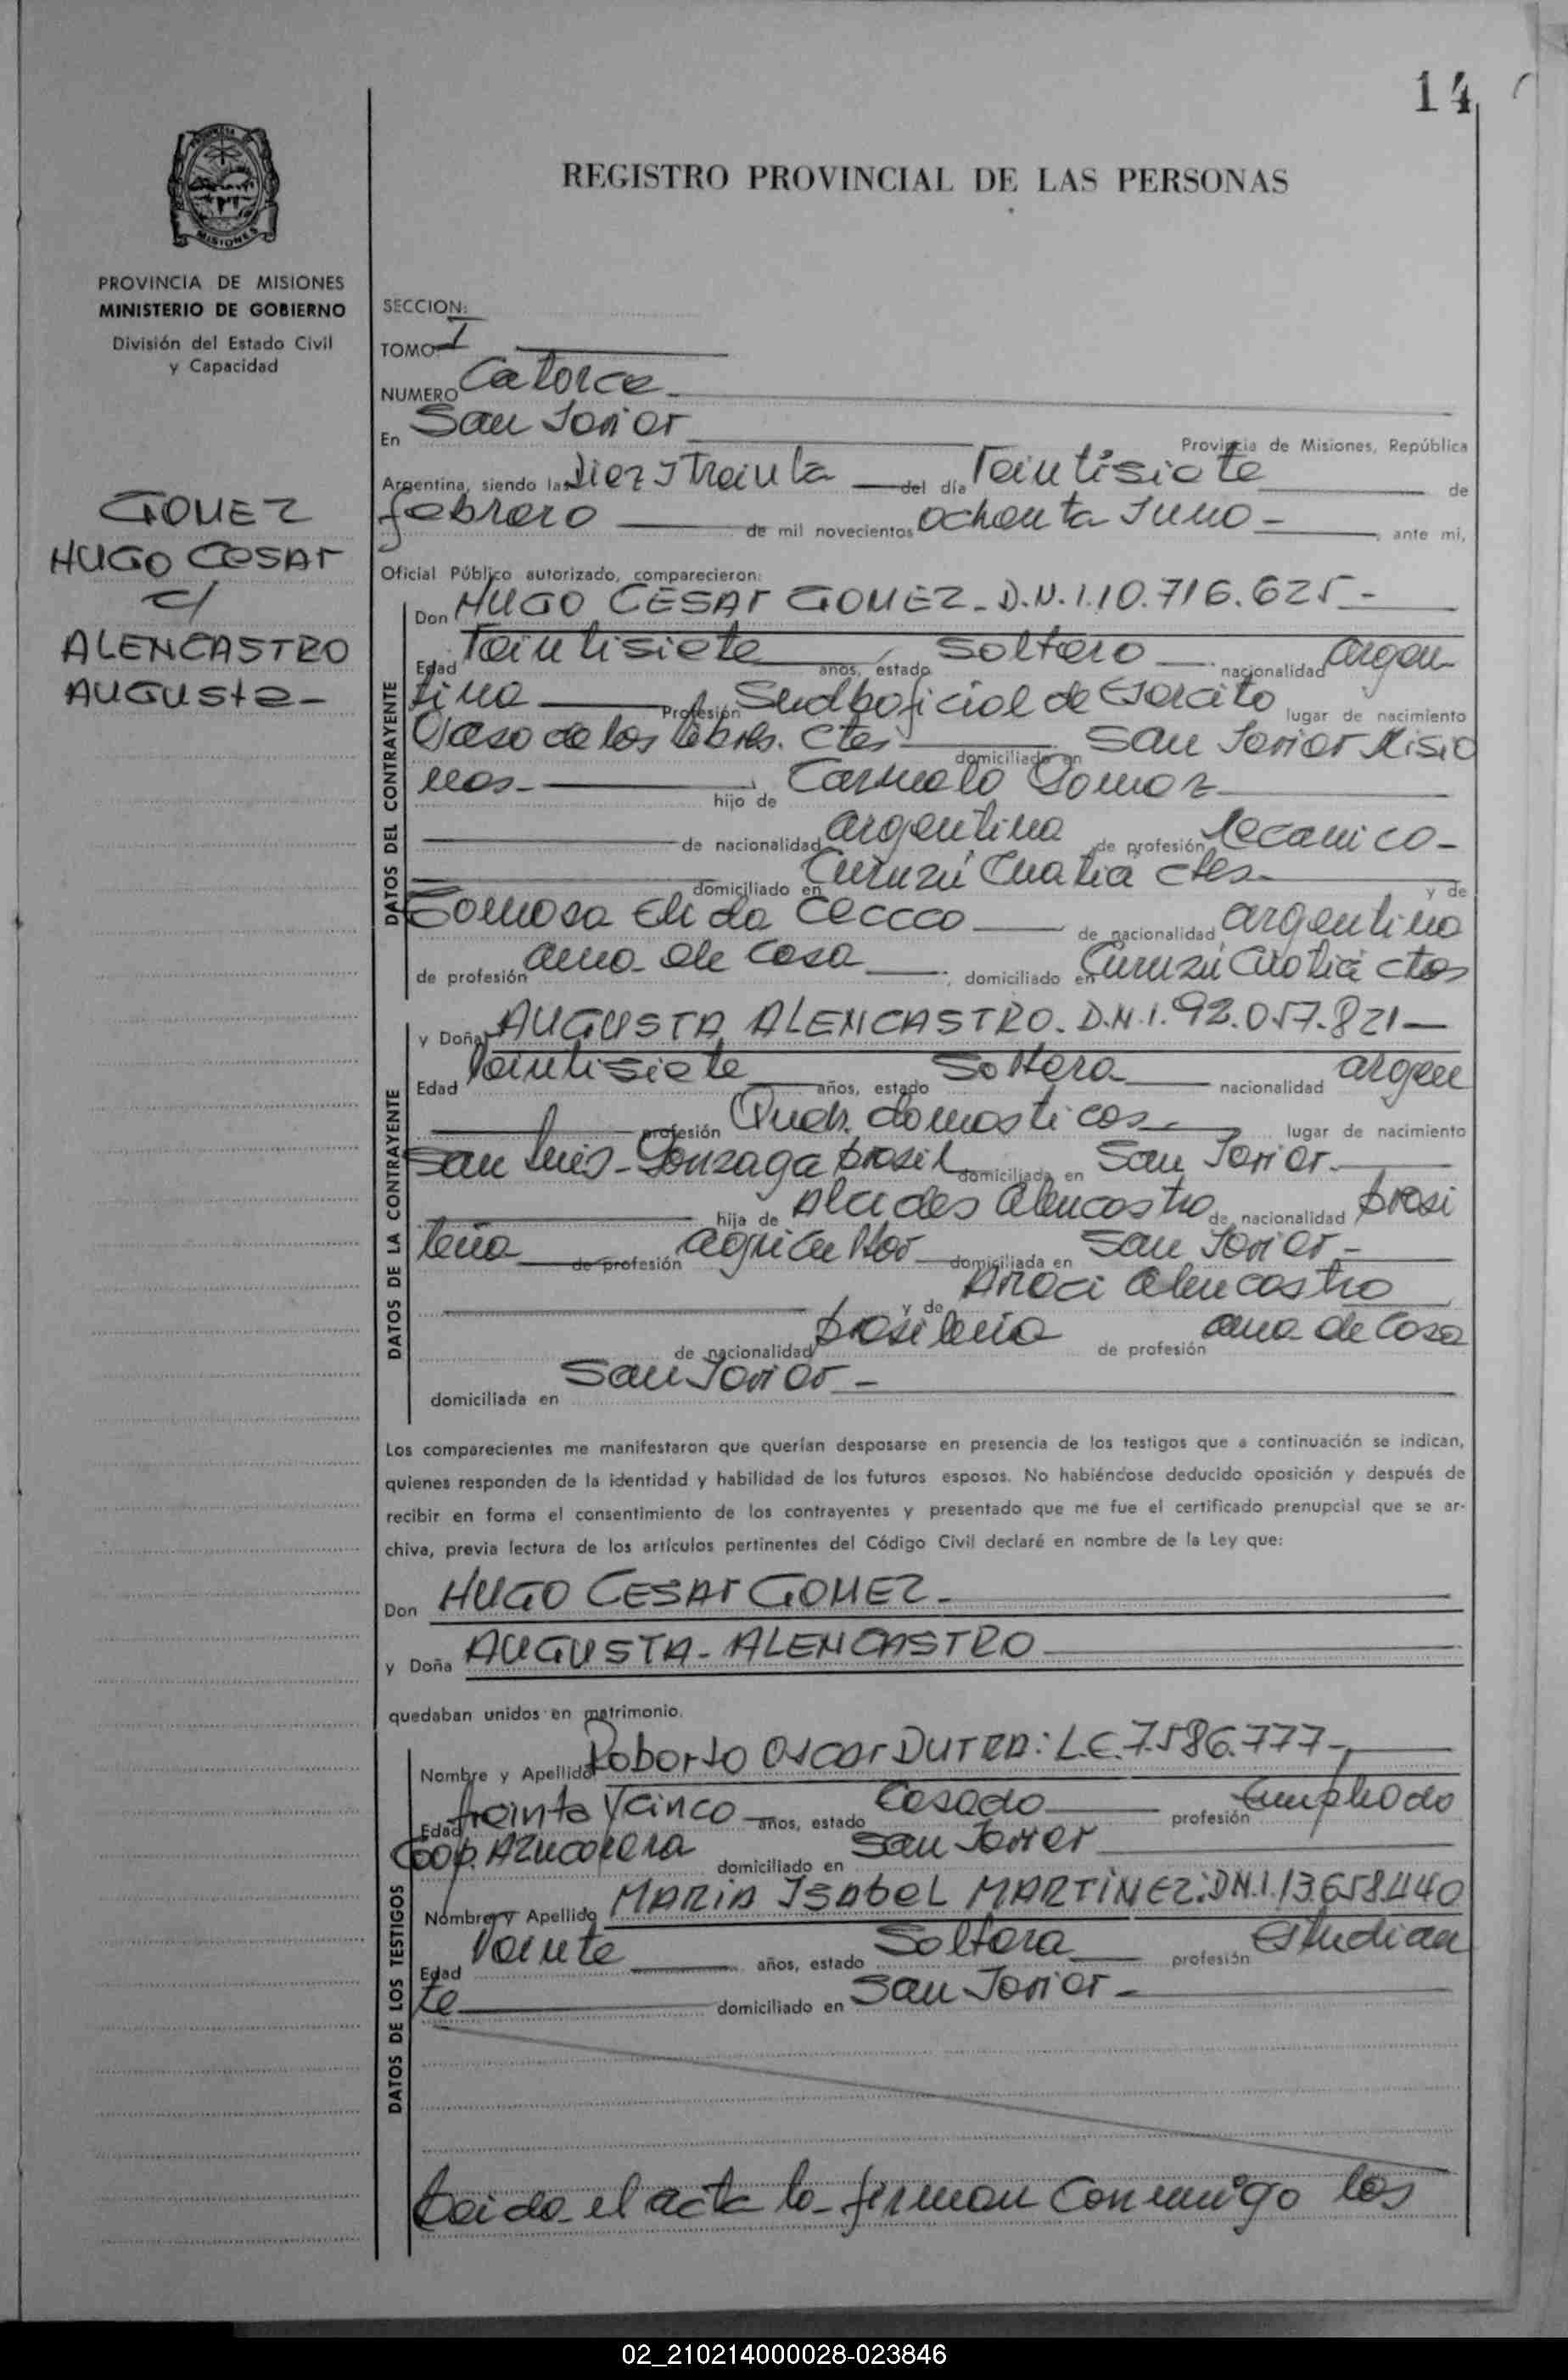 14
REGISTRO PROVINCIAL DE LAS PERSONAS
MISIONES
PROVINCIA DE MISIONES
MINISTERIO DE GOBIERNO
División del Estado Civil
y Capacidad
GOMEZ
HUGO CESAR
c/
ALENCASTRO
AUGUSTA-
SECCION:
TOMO I
NUMERO Catorce
En San Javier Provincia de Misiones, República
Argentina, siendo las Diez y Treinta del día Veintisiete de
febrero de mil novecientos ochenta y uno - , ante mi,
Oficial Público autorizado, comparecieron:
DATOS DEL CONTRAYENTE
Don HUGO CESAR GOMEZ - D.N.I. 10.716.625 -
Edad Veintisiete años, estado Soltero nacionalidad argen
tina Profesión Suboficial de Ejercito lugar de nacimiento
Paso de los Libres. Ctes domiciliado en San Javier Misio
nes - hijo de Carmelo Gomez
de nacionalidad argentina de profesión Mecanico -
domiciliado en Curuzú Cuatiá Ctes - y de
Elida de nacionalidad argentina
de profesión ama de casa ; domiciliado en Curuzú Cuatiá Ctes
DATOS DE LA CONTRAYENTE
y Doña AUGUSTA ALENCASTRO. D.N.I. 92.057.821 -
Edad Veintisiete años, estado Soltera nacionalidad argen
profesión Queh. domesticos lugar de nacimiento
San Luis - Gonzaga brasil domiciliada en San Javier -
hija de Alcides Alencastro de nacionalidad brasi
leña de profesión agricultor domiciliada en San Javier -
y de Araci Alencastro
de nacionalidad brasileña de profesión ama de casa
domiciliada en San Javier -
Los comparecientes me manifestaron que querían desposarse en presencia de los testigos que a continuación se indican,
quienes responden de la identidad y habilidad de los futuros esposos. No habiéndose deducido oposición y después de
recibir en forma el consentimiento de los contrayentes y presentado que me fue el certificado prenupcial que se ar-
chiva, previa lectura de los artículos pertinentes del Código Civil declaré en nombre de la Ley que:
Don HUGO CESAR GOMEZ -
y Doña AUGUSTA - ALENCASTRO
quedaban unidos en matrimonio.
DATOS DE LOS TESTIGOS
Nombre y Apellido Roberto Oscar DUTRA: L.E. 7.586.777 -
Edad treinta y cinco años, estado Casado profesión Empleado
Coop. Azucarera domiciliado en San Javier
Nombre y Apellido MARIA ISABEL MARTINEZ: D.N.I. 13.658.440
Edad Veinte años, estado Soltera profesión estudian
te domiciliado en San Javier -
Leida el acta la firman conmigo los
02_210214000028-023846